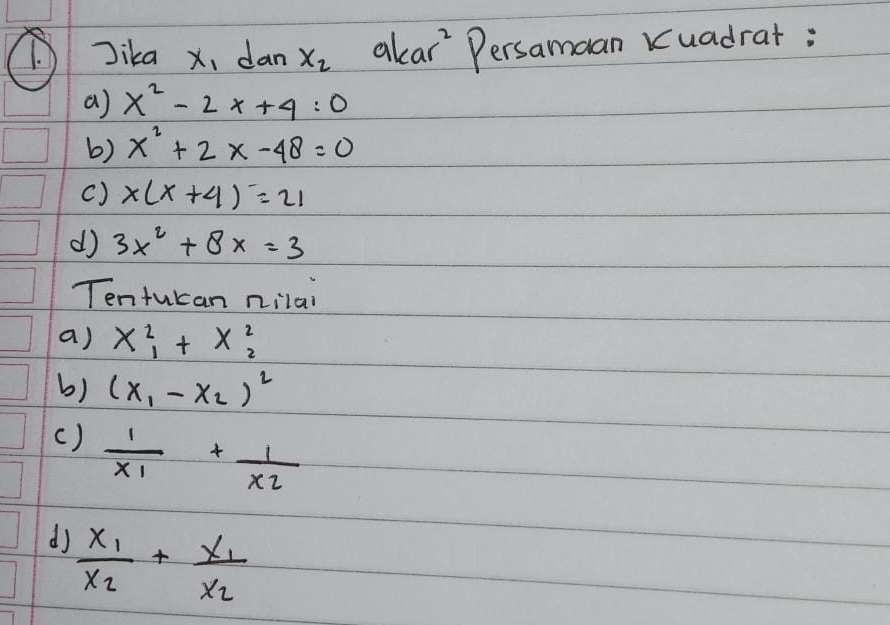 1. Jika x₁ dan x₂ akar² Persamaan Kuadrat :
a) x² - 2x + 4 : 0
b) x² + 2x - 48 = 0
c) x(x + 4) = 21
d) 3x² + 8x = 3
Tentukan nilai
a) x₁² + x₂²
b) (x₁ - x₂)²
c) 1/x1 + 1/x2
d) x₁/x₂ + x₁/x₂